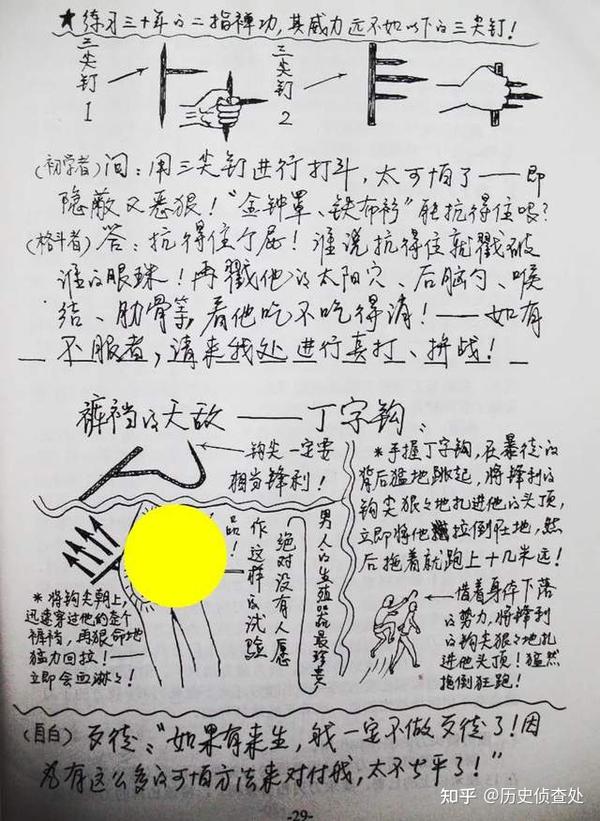 ★练习三十年的二指禅功,其威力远不如以下的三尖钉!
三尖钉1
三尖钉2
(初学者)问:用三尖钉进行打斗,太可怕了——即
隐蔽又恶狠!“金钟罩、铁布衫”能抗得住吗?
(格斗者)答:抗得住个屁!谁说抗得住就戳破
谁的眼珠!再戳他的太阳穴、后脑勺、喉
结、肋骨等,看他吃不吃得消!——如有
不服者,请来我处进行真打、拼战!
裤裆的天敌——丁字钩:
钩尖一定要
相当锋利!
*手握丁字钩,在暴徒的
背后猛地跳起,将锋利的
钩尖狠々地扎进他的头顶,
立即将他拉倒在地,然
后拖着就跑上十几米远!
男人的生殖器最珍贵
绝对没有人愿
作这样的试验
品!
*将钩尖朝上,
迅速穿过他的整个
裤裆,再狠命地
猛力回拉!——
立即会血淋々!
借着身体下落
的势力,将锋利
的钩尖狠々地扎
进他头顶!猛然
拖倒狂跑!
(自白)歹徒:“如果有来生,我一定不做歹徒了!因
为有这么多的可怕方法来对付我,太不公平了!”
-29-
知乎 @历史侦查处